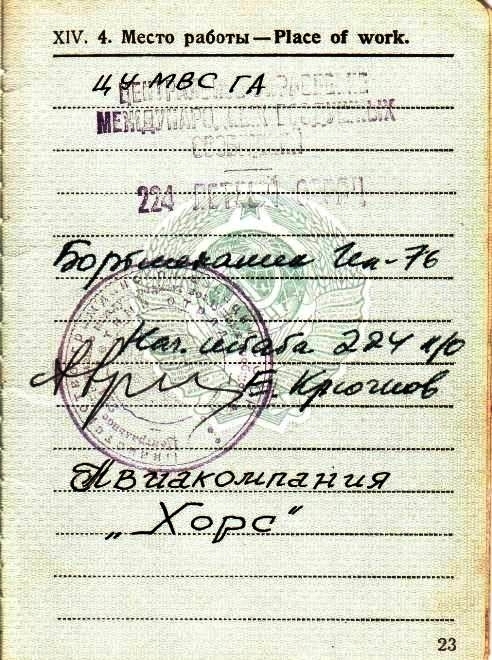 XIV. 4. Место работы — Place of work.
ЦУ МВС ГА
ЦЕНТРАЛЬНОЕ УПРАВЛЕНИЕ
МЕЖДУНАРОДНЫХ ВОЗДУШНЫХ
СООБЩЕНИЙ
224 ЛЕТНЫЙ ОТРЯД
Бортмеханик Ил-76
Нач. штаба 224 л/о
Е. Крючков
Авиакомпания
„Хорс“
23